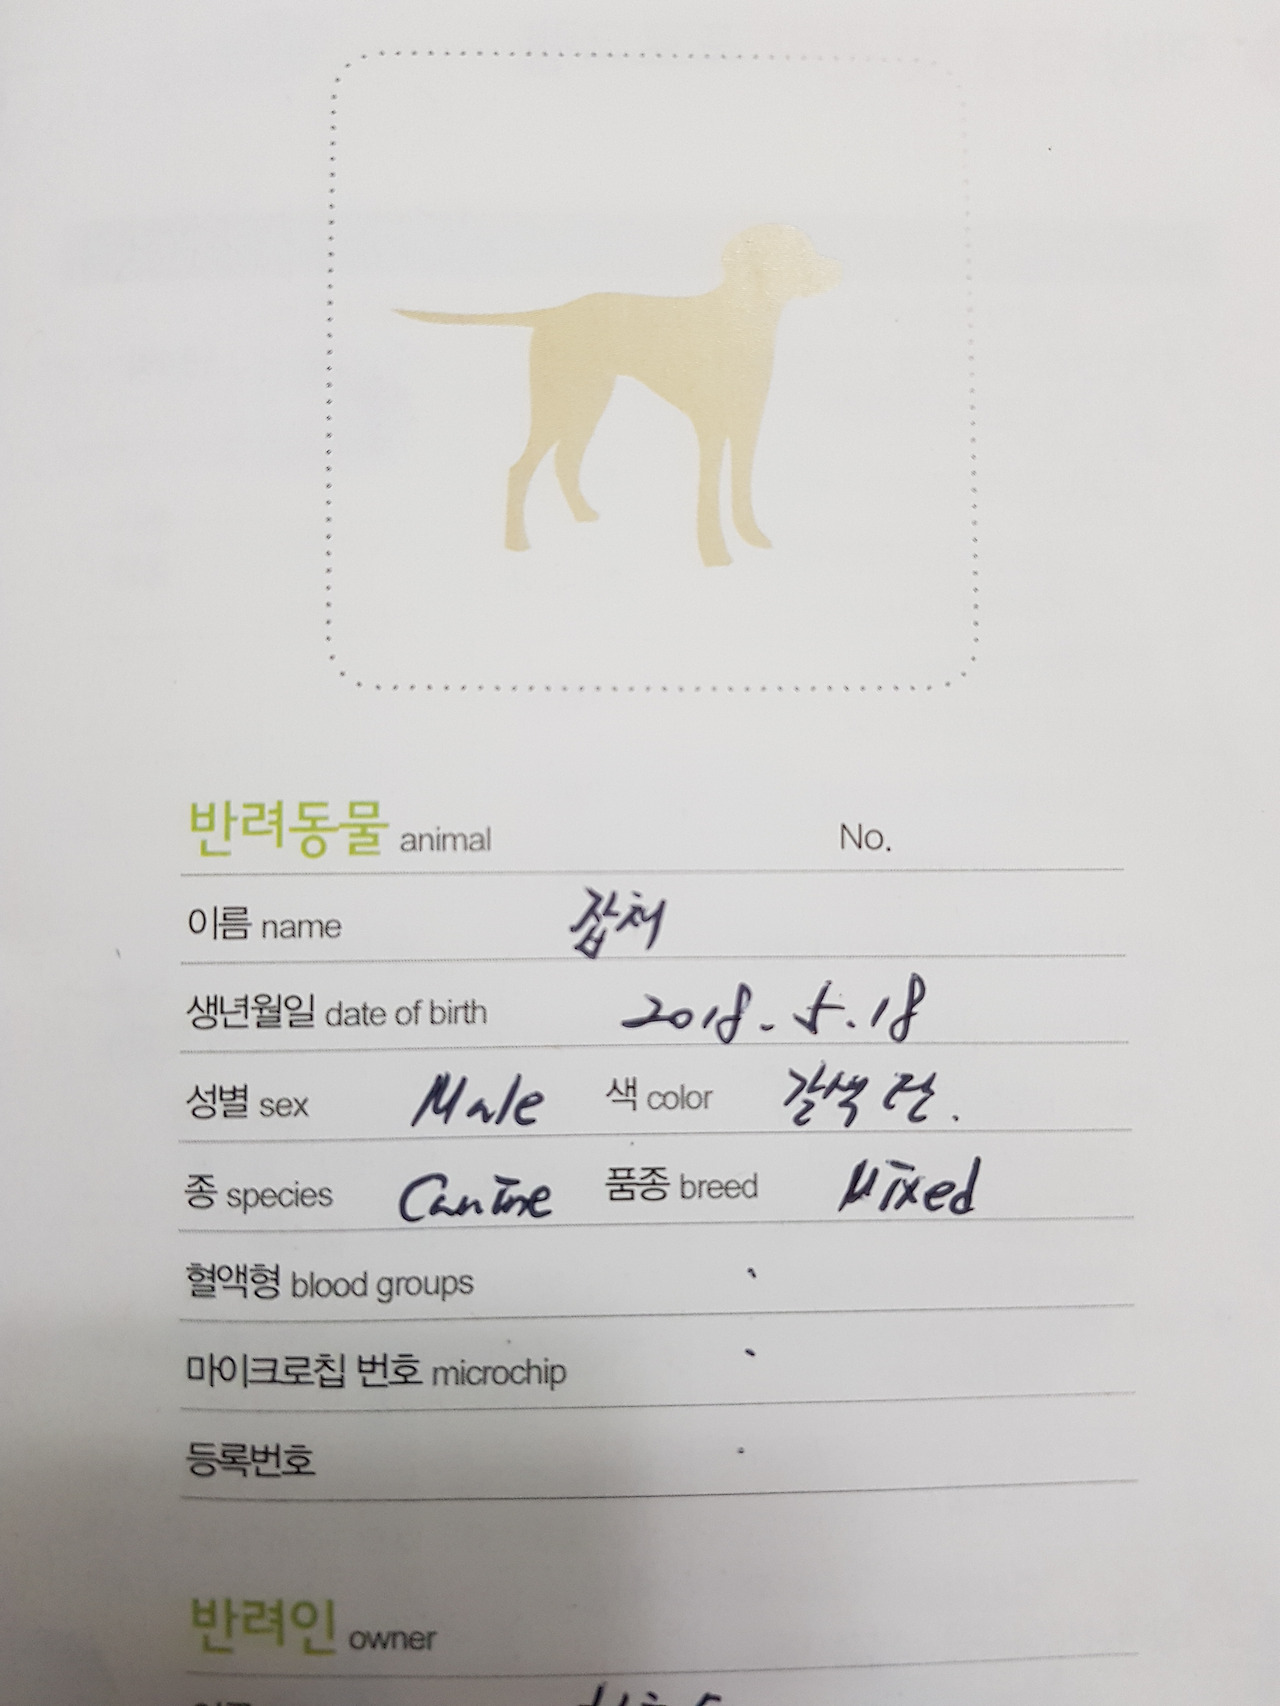 반려동물 animal No.
이름 name 잡채
생년월일 date of birth 2018. 5. 18
성별 sex Male 색 color 갈색
종 species Canine 품종 breed Mixed
혈액형 blood groups
마이크로칩 번호 microchip
등록번호
반려인 owner